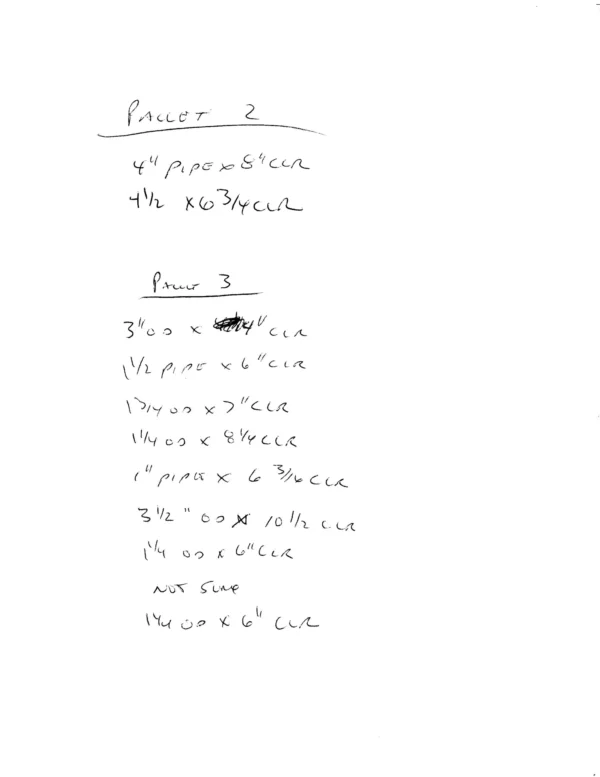 PALLET 2
4" PIPE x 8" CLR
4 1/2 x 6 3/4 CLR
PALLET 3
3" OD x 4" CLR
1 1/2 PIPE x 6" CLR
1 3/4 OD x 7" CLR
1 1/4 OD x 8 1/4 CLR
1" PIPE x 6 3/16 CLR
3 1/2" OD x 10 1/2 CLR
1 1/4 OD x 6" CLR
NOT SURE
OD x 6" CLR